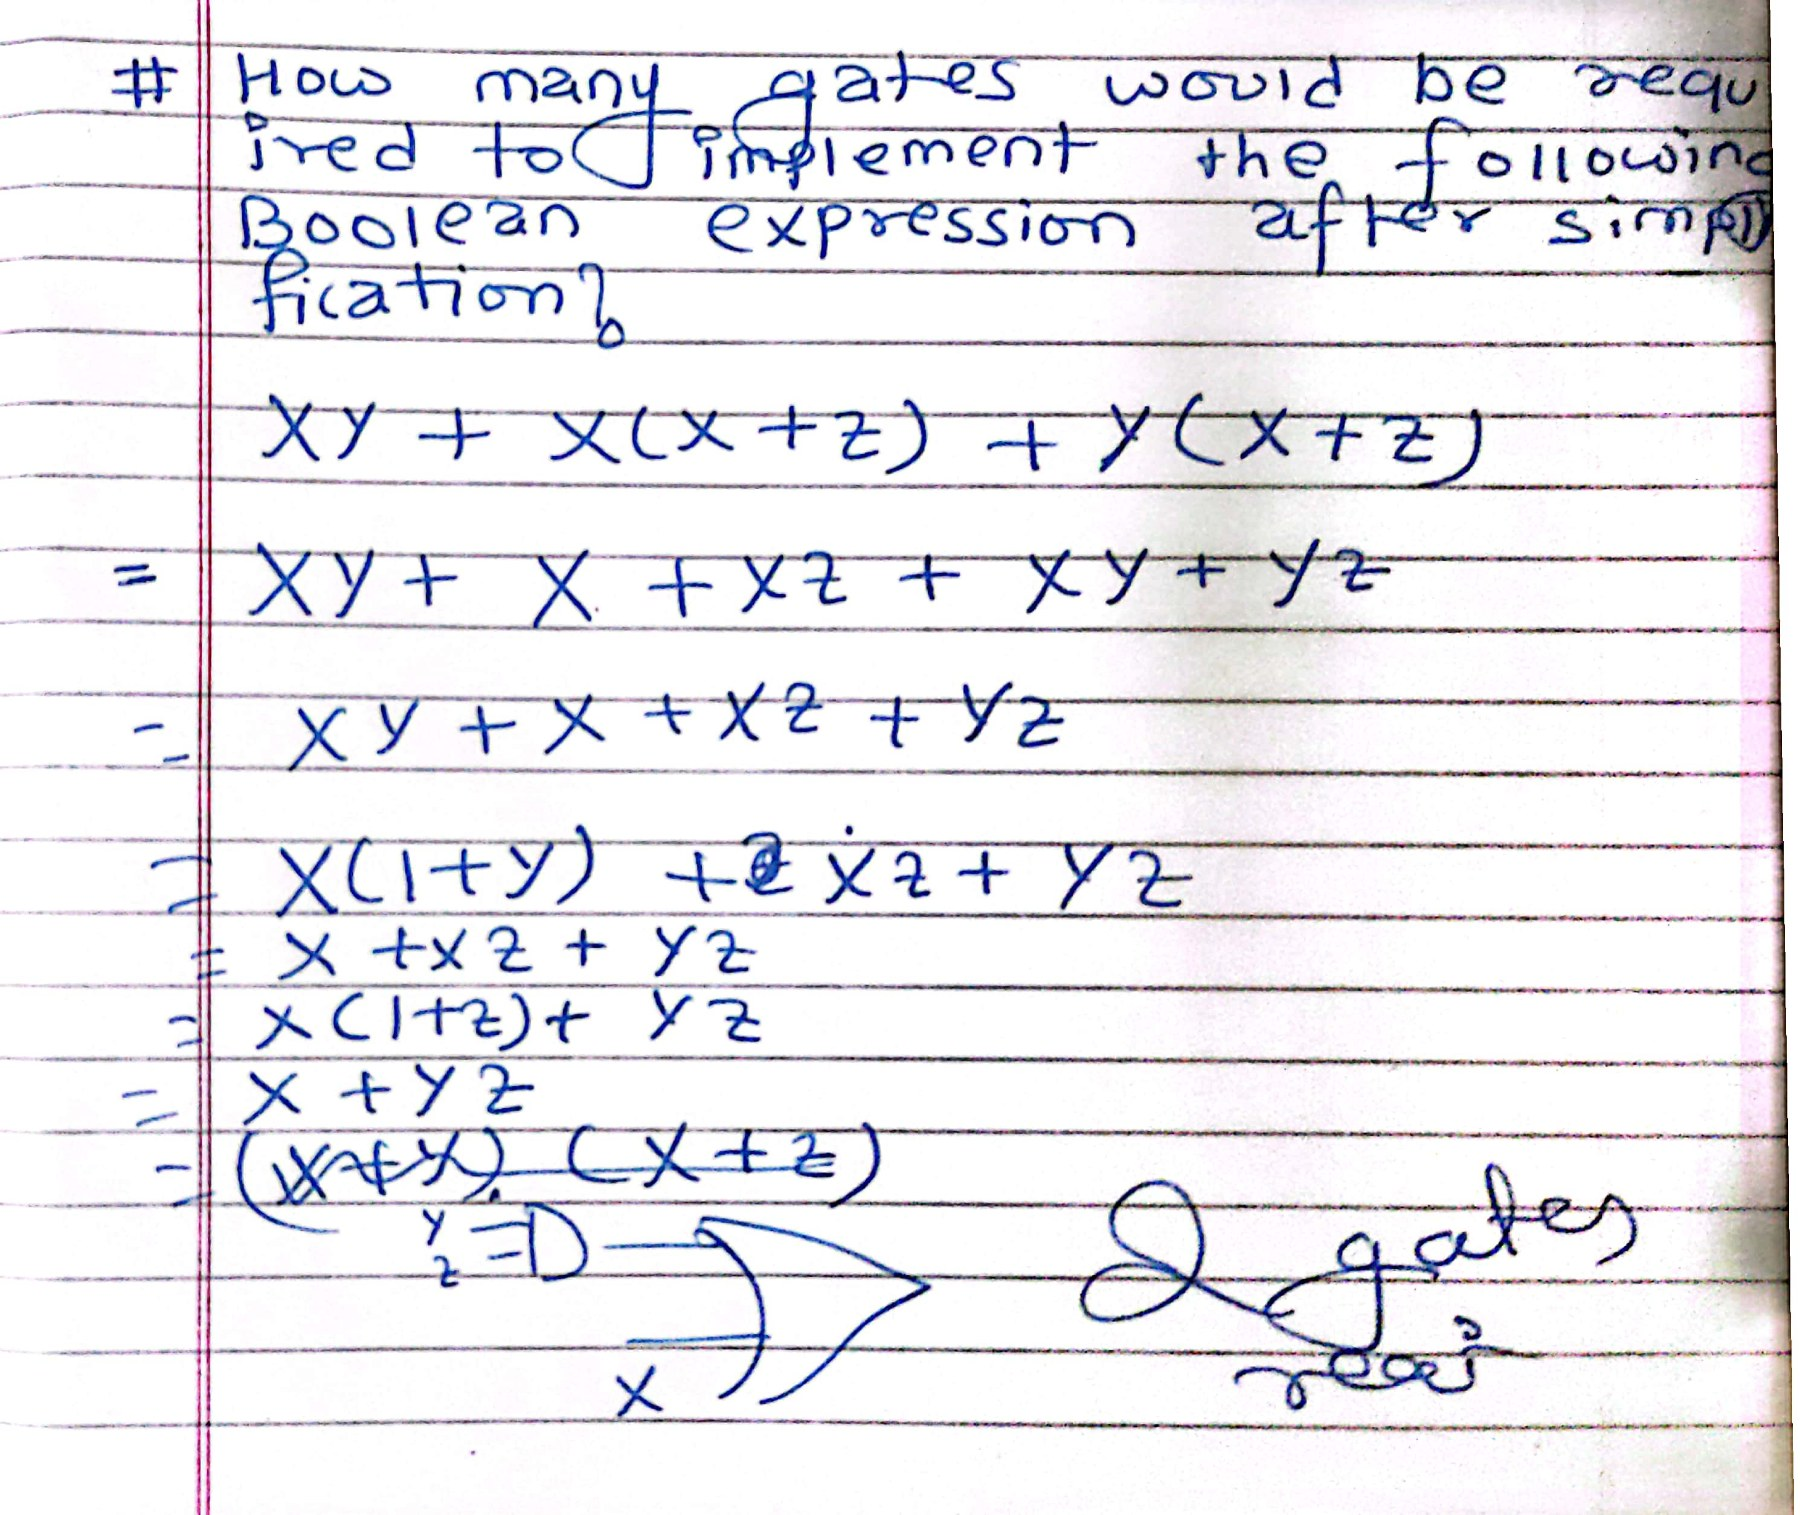 # How many gates would be requ
ired to implement the following
Boolean expression after simpli
fication?
XY + X(X+Z) + Y(X+Z)
= XY + X + XZ + XY + YZ
= XY + X + XZ + YZ
= X(1+Y) + XZ + YZ
= X + XZ + YZ
= X(1+Z) + YZ
= X + YZ
= (X+Y).(X+Z)
Y
Z
X
2 gates